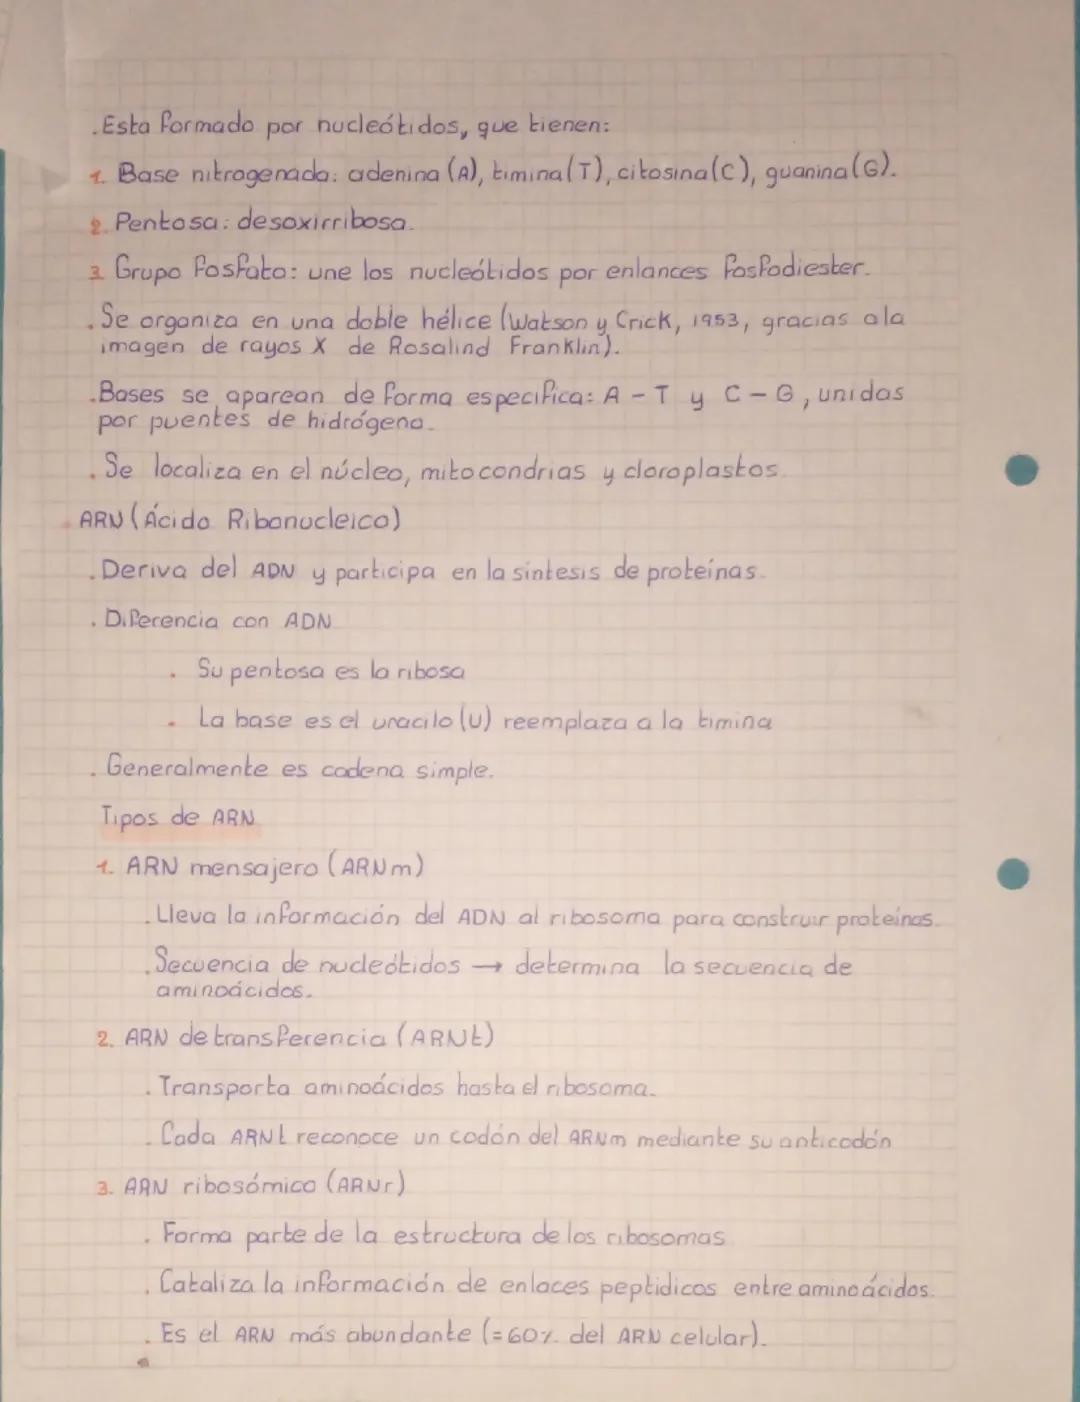 . Esta formado por nucleótidos, que tienen:
1. Base nitrogenada: adenina (A), timina (T), citosina (C), guanina (G).
2. Pentosa: desoxirribosa.
3 Grupo fosfato: une los nucleótidos por enlances fosfodiester.
. Se organiza en una doble hélice (Watson y Crick, 1953, gracias a la
imagen de rayos X de Rosalind Franklin).
. Bases se aparean de forma especifica: A - T y C - G, unidas
por puentes de hidrógeno.
. Se localiza en el núcleo, mitocondrias y cloroplastos.
ARN (Ácido Ribonucleico)
. Deriva del ADN y participa en la síntesis de proteínas.
. Diferencia con ADN
. Su pentosa es la ribosa
. La base es el uracilo (U) reemplaza a la timina
. Generalmente es cadena simple.
Tipos de ARN
1. ARN mensajero (ARNm)
. Lleva la información del ADN al ribosoma para construir proteínas.
. Secuencia de nucleótidos → determina la secuencia de
aminoácidos.
2. ARN de transferencia (ARNt)
. Transporta aminoácidos hasta el ribosoma.
. Cada ARNt reconoce un codón del ARNm mediante su anticodón
3. ARN ribosómico (ARNr)
. Forma parte de la estructura de los ribosomas
. Cataliza la información de enlaces peptidicos entre aminoácidos.
. Es el ARN más abundante (=60% del ARN celular).